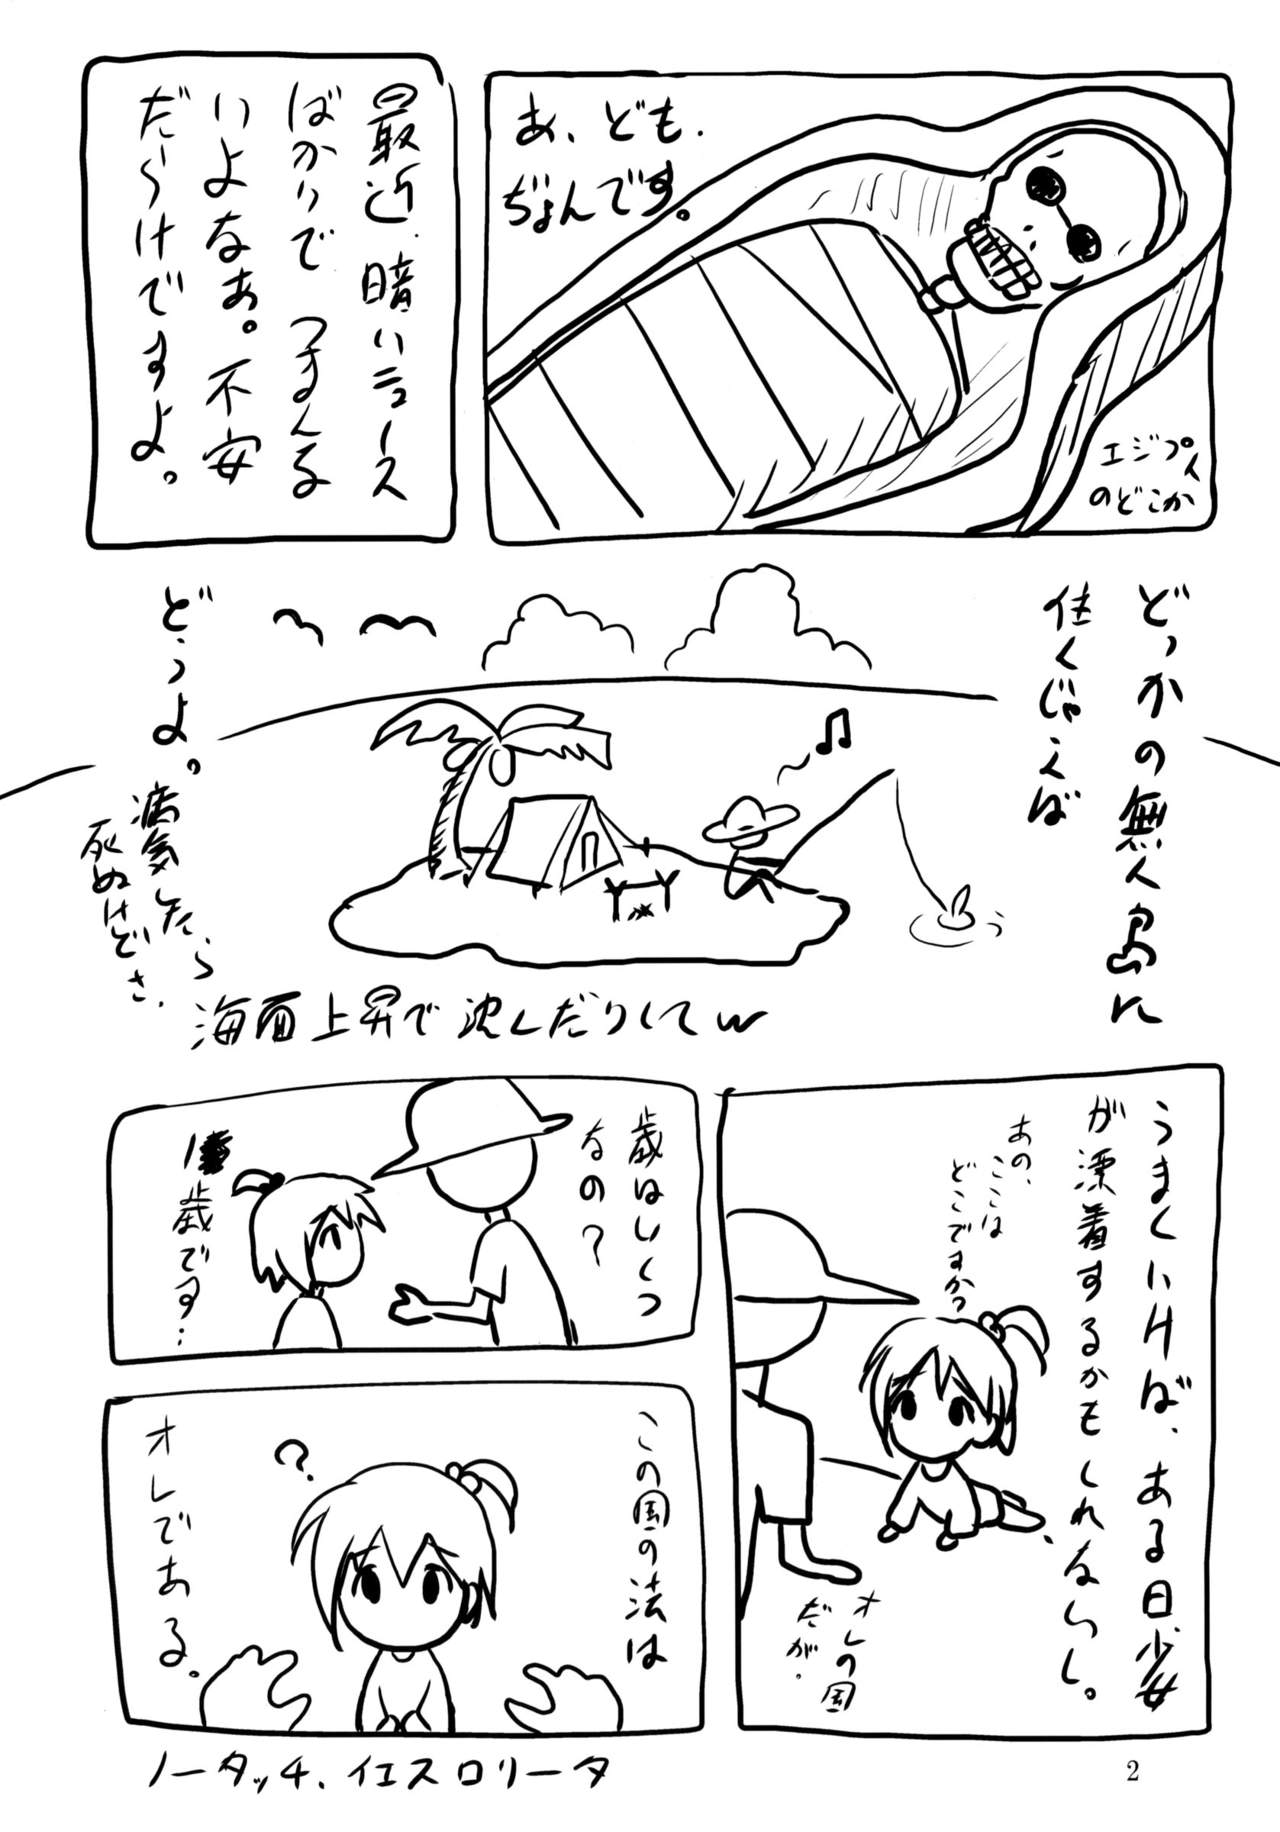 あ、ども.
ぢょんです。
エジプト
のどこか
最近.暗いニュース
ばかりで つまんな
いよなぁ。不安
だらけですよ。
どっかの無人島に
住んじゃえば
どうよ。
病気したら
死ぬけどさ.
海面上昇で沈んだりしてw
うまくいけば、ある日、少女
が漂着するかもしれないし。
あの、
ここは
どこですか?
オレの国
だが.
歳はいくつ
なの?
歳です…
この国の法は
オレである。
?
ノータッチ、イエスロリータ
2